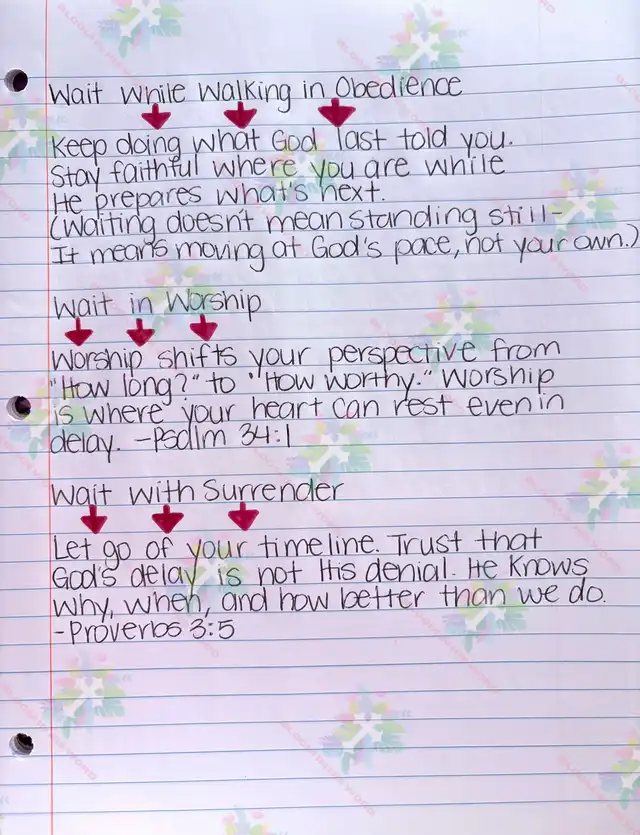 Wait while Walking in Obedience
Keep doing what God last told you.
Stay faithful where you are while
He prepares what's next.
(Waiting doesn't mean standing still-
It means moving at God's pace, not your own.)
Wait in Worship
Worship shifts your perspective from
"How long?" to "How worthy." Worship
is where your heart can rest even in
delay. -Psalm 34:1
Wait with Surrender
Let go of your timeline. Trust that
God's delay is not His denial. He knows
why, when, and how better than we do.
-Proverbs 3:5